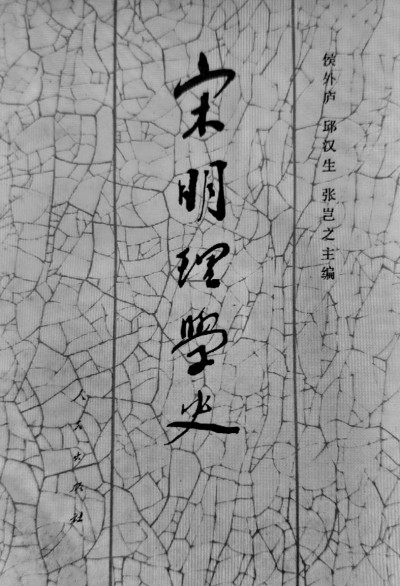 侯外庐 邱汉生 张岂之主编
宋明理学史
人民出版社